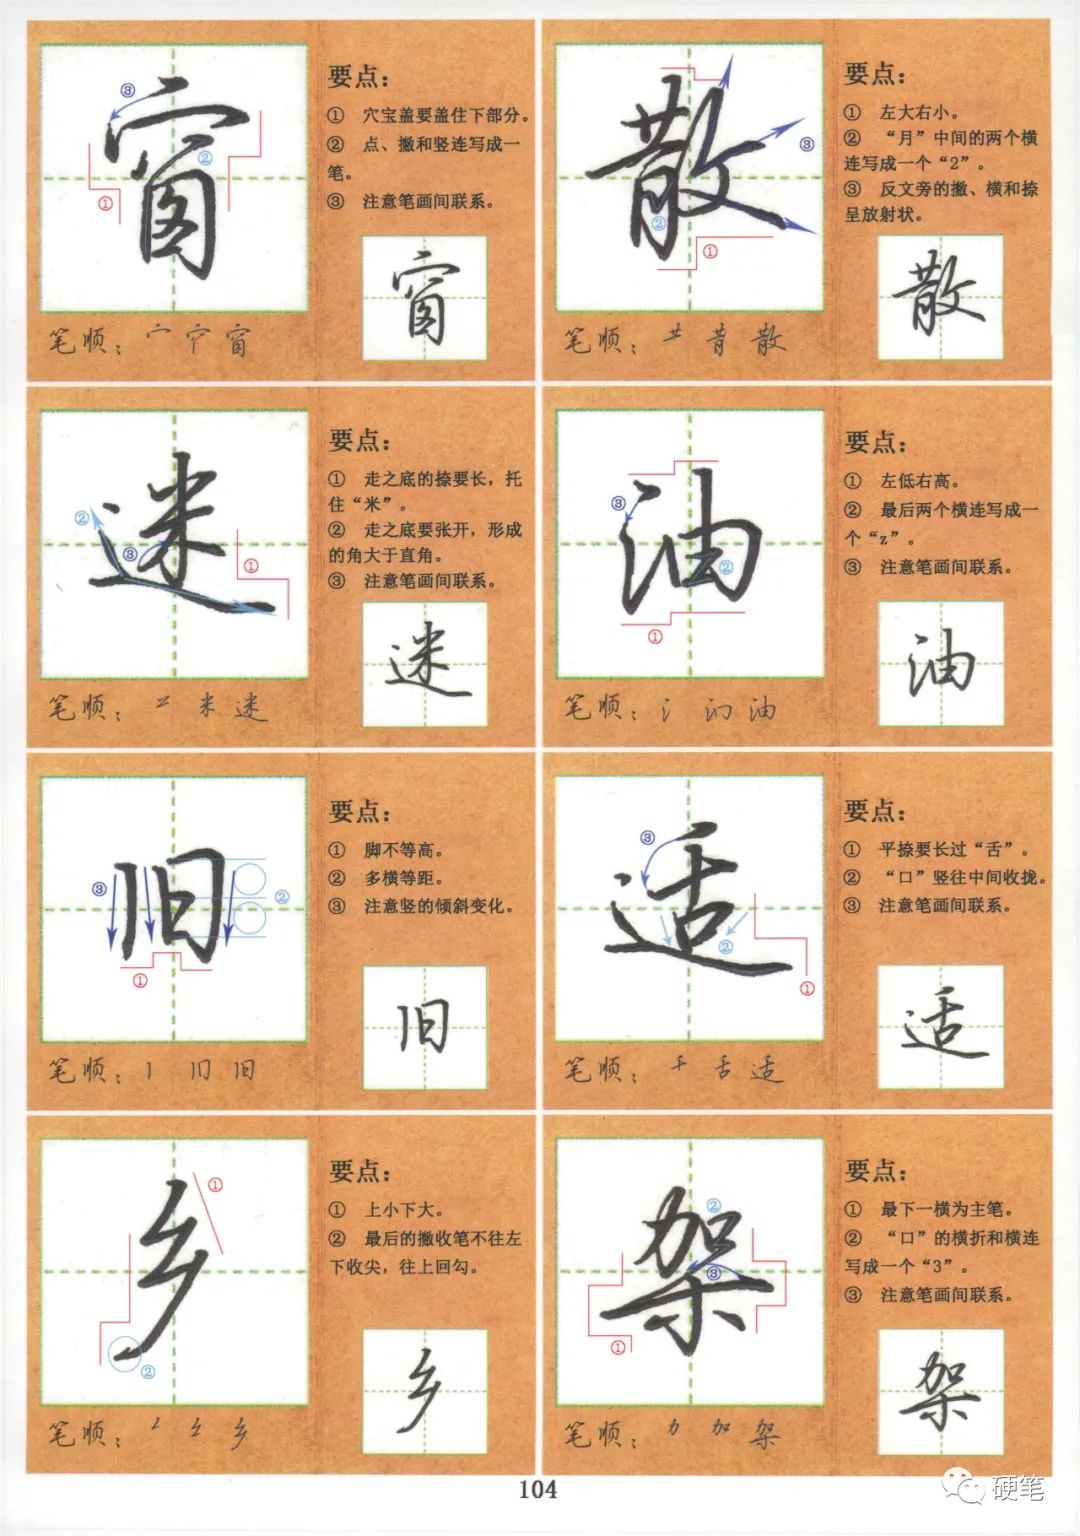 窗
要点：
① 穴宝盖要盖住下部分。
② 点、撇和竖连写成一
笔。
③ 注意笔画间联系。
③
②
①
窗
笔顺：宀 穴 窗
散
要点：
① 左大右小。
② “月”中间的两个横
连写成一个“2”。
③ 反文旁的撇、横和捺
呈放射状。
③
②
①
散
笔顺：龷 昔 散
迷
要点：
① 走之底的捺要长，托
住“米”。
② 走之底要张开，形成
的角大于直角。
③ 注意笔画间联系。
②
③
①
迷
笔顺：米 迷
油
要点：
① 左低右高。
② 最后两个横连写成一
个“z”。
③ 注意笔画间联系。
③
②
①
油
笔顺：氵 油
旧
要点：
① 脚不等高。
② 多横等距。
③ 注意竖的倾斜变化。
③
②
①
旧
笔顺：丨 旧 旧
适
要点：
① 平捺要长过“舌”。
② “口”竖往中间收拢。
③ 注意笔画间联系。
③
②
①
适
笔顺：千 舌 适
乡
要点：
① 上小下大。
② 最后的撇收笔不往左
下收尖，往上回勾。
①
②
乡
笔顺：乡
架
要点：
① 最下一横为主笔。
② “口”的横折和横连
写成一个“3”。
③ 注意笔画间联系。
②
③
①
架
笔顺：力 加 架
104
硬笔